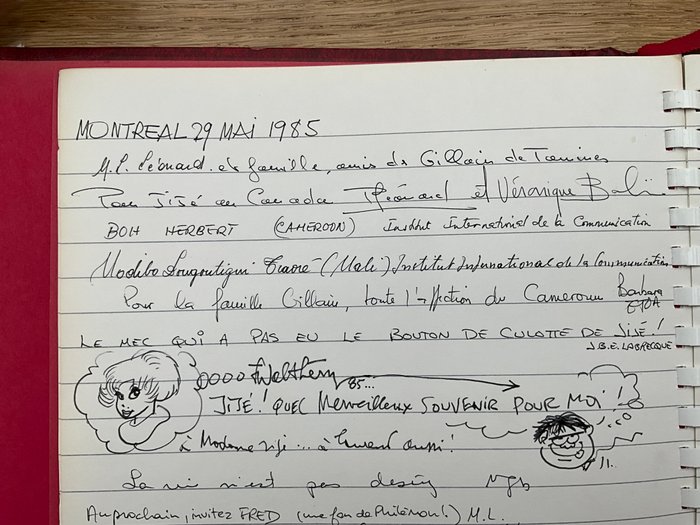 MONTREAL 29 MAI 1985
M.L. Léonard et famille, amis de Gillain de Tamines
Pour JIJÉ au Canada Léonard et Véronique
BOH HERBERT (CAMEROON) Institut International de la Communication
Modibo (Mali) Institut International de la Communication
Pour la famille Gillain, toute l'affection du Cameroun Barbara ETOA
LE MEC QUI A PAS EU LE BOUTON DE CULOTTE DE JIJÉ!
J.B.E. LABRECQUE
85...
JIJÉ! QUEL Merveilleux SOUVENIR POUR MOI!
à Madame Jijé... à Laurent aussi!
La vie n'est pas
Au prochain, invitez FRED (une fan de Philémon!) M.L.